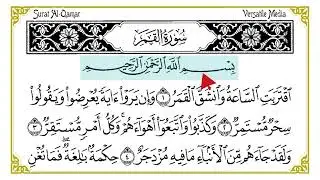 Surat Al-Qamar Versatile Media
سُورَةُ القَمَرِ
بِسْمِ اللَّهِ الرَّحْمَٰنِ الرَّحِيمِ
اقْتَرَبَتِ السَّاعَةُ وَانْشَقَّ الْقَمَرُ ١ وَإِن يَرَوْا ءَايَةً يُعْرِضُوا وَيَقُولُوا
سِحْرٌ مُّسْتَمِرٌّ ٢ وَكَذَّبُوا وَاتَّبَعُوا أَهْوَاءَهُمْ وَكُلُّ أَمْرٍ مُّسْتَقِرٌّ ٣
وَلَقَدْ جَاءَهُم مِّنَ الْأَنبَاءِ مَا فِيهِ مُزْدَجَرٌ ٤ حِكْمَةٌ بَالِغَةٌ فَمَا تُغْنِ